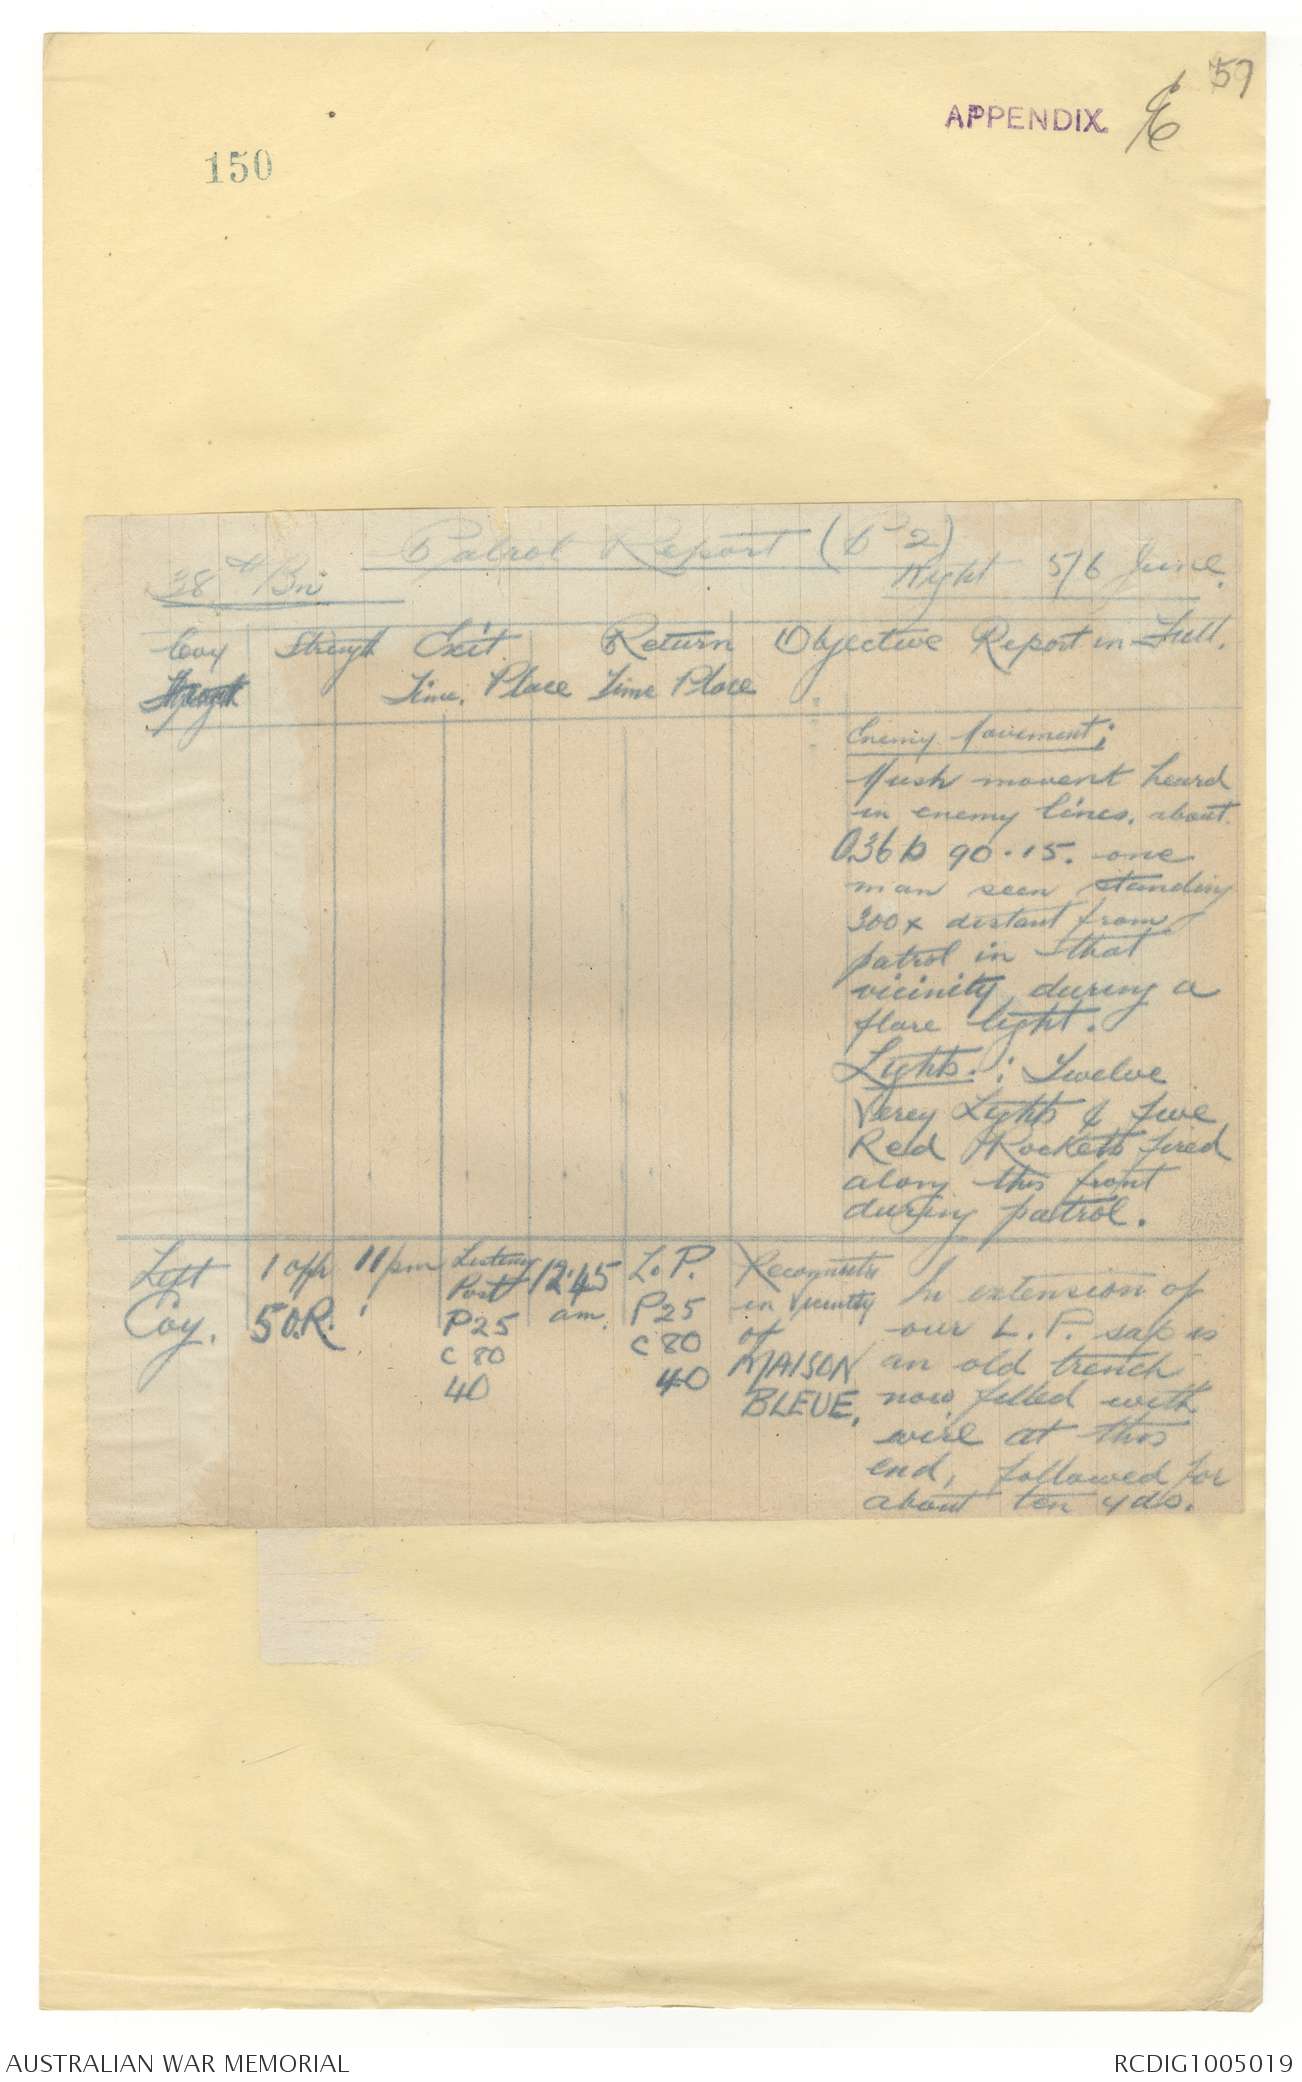 57
APPENDIX. E
150
Patrol Report (P 2)
38th Bn
Night 5/6 June.
Coy Strength Exit Return Objective Report in Full.
Strength
Time. Place Time Place
Enemy Movement;
Mush movent heard
in enemy lines, about
O36 b 90.15. one
man seen standing
300x distant from
patrol in that
vicinity during a
flare light.
Lights. : Twelve
Verey Lights & Five
Red Rockets fired
along this front
during patrol.
Left
Coy.
1 offr
5 O.R.
11 pm
Listening
Post
P25
C 80
40
12.45
am.
L. P.
P25
C 80
40
Reconnoitre
in vicinity
of
MAISON
BLEUE.
In extension of
our L. P. sap is
an old trench
now filled with
wire at this
end, followed for
about ten yds.
AUSTRALIAN WAR MEMORIAL
RCDIG1005019